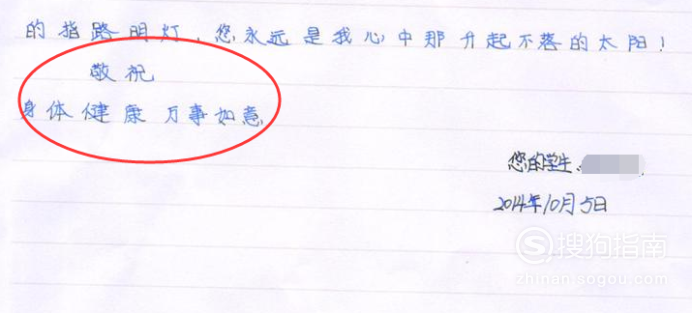 的指路明灯、您永远是我心中那升起不落的太阳!
敬祝
身体健康 万事如意
您的学生、
2014年10月5日
搜狗指南
zhinan.sogou.com